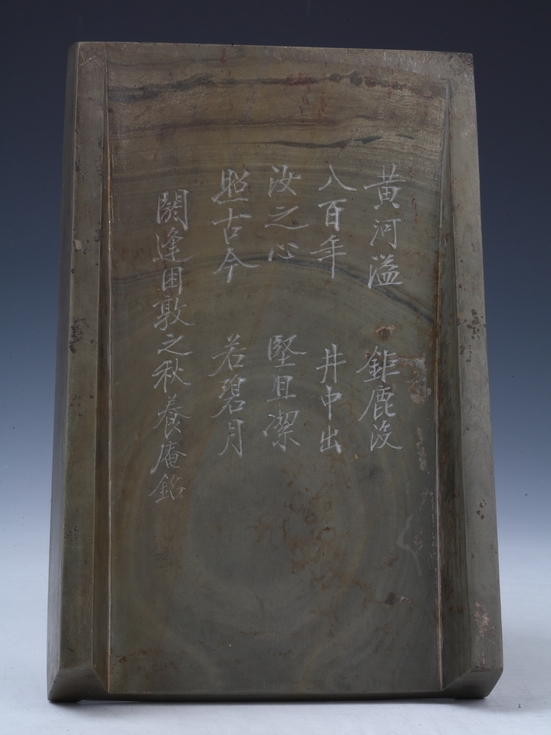 黄河溢 鉅鹿没
八百年 井中出
汝之心 堅且潔
照古今 若碧月
閼逢困敦之秋養庵銘